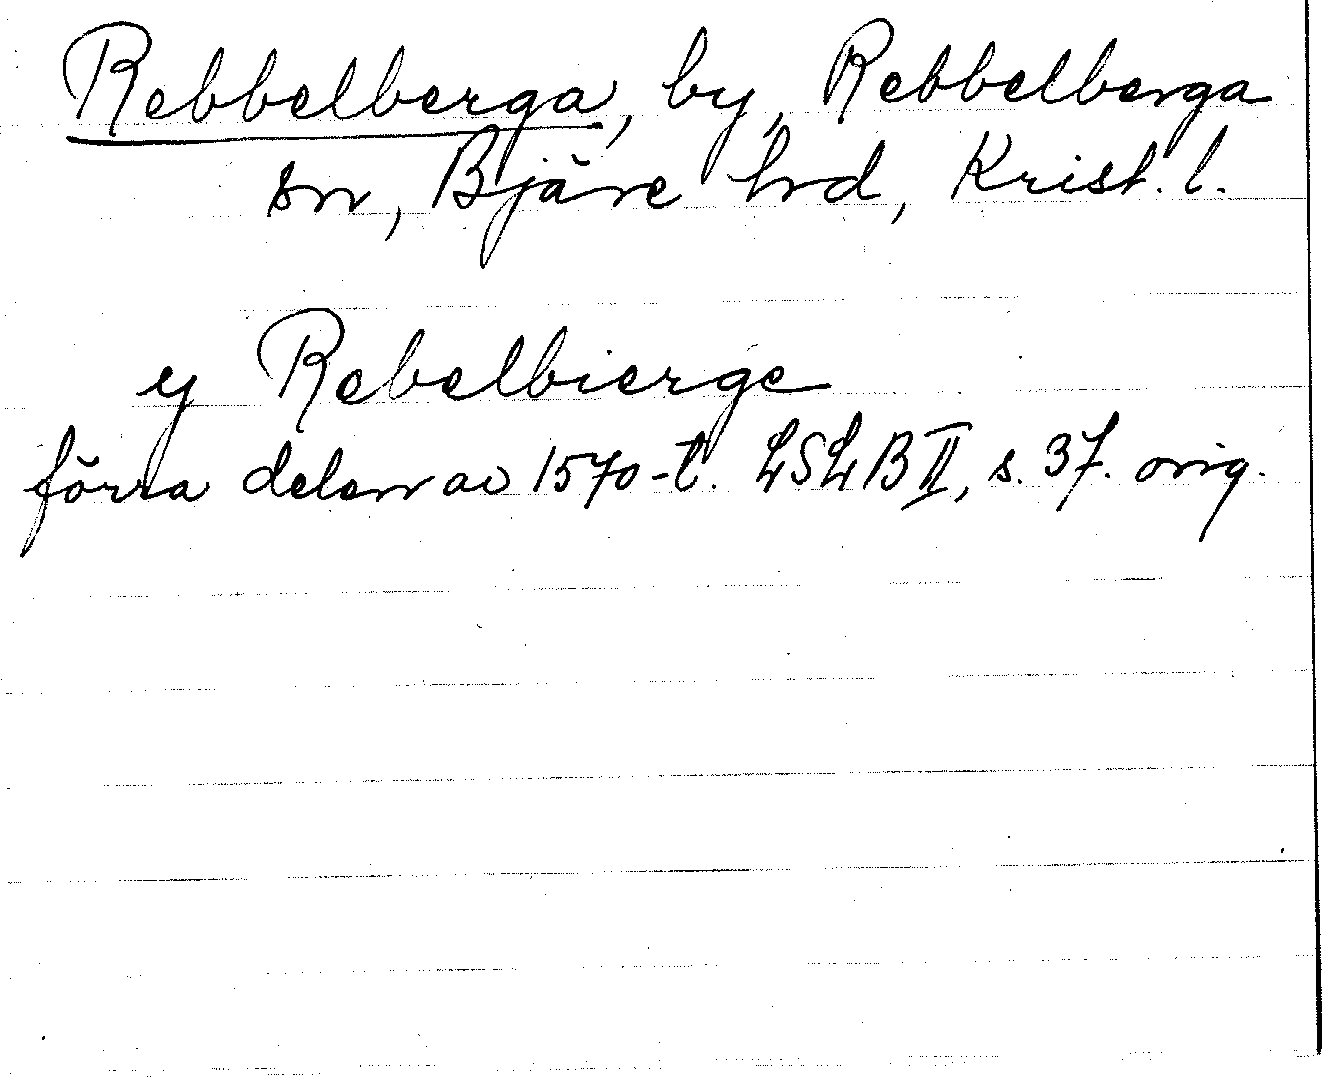 Rebbelberga, by, Rebbelberga
sn, Bjäre hrd, Krist. l.
y Rebelbierge
förra delen av 1570-t. LSLB II, s. 37. orig.